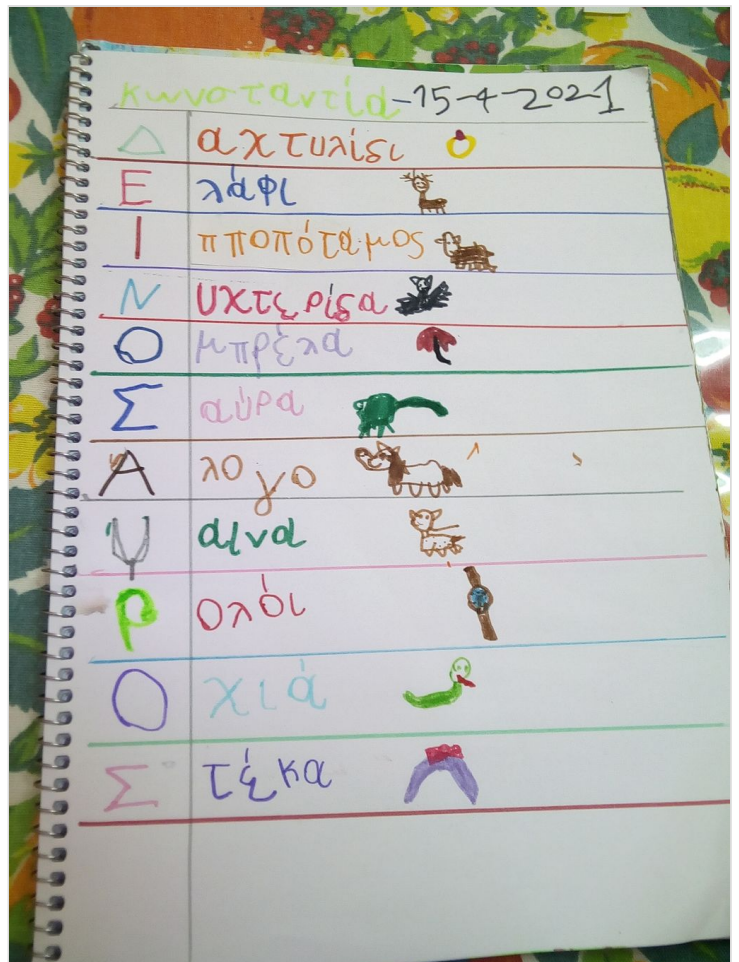 κωνσταντία-15-4-2021
Δ αχτυλίδι
Ε λάφι
Ι πποπόταμος
Ν υχτερίδα
Ο μπρέλα
Σ αύρα
Α λογο
Υ αινα
Ρ ολόι
Ο χιά
Σ τέκα